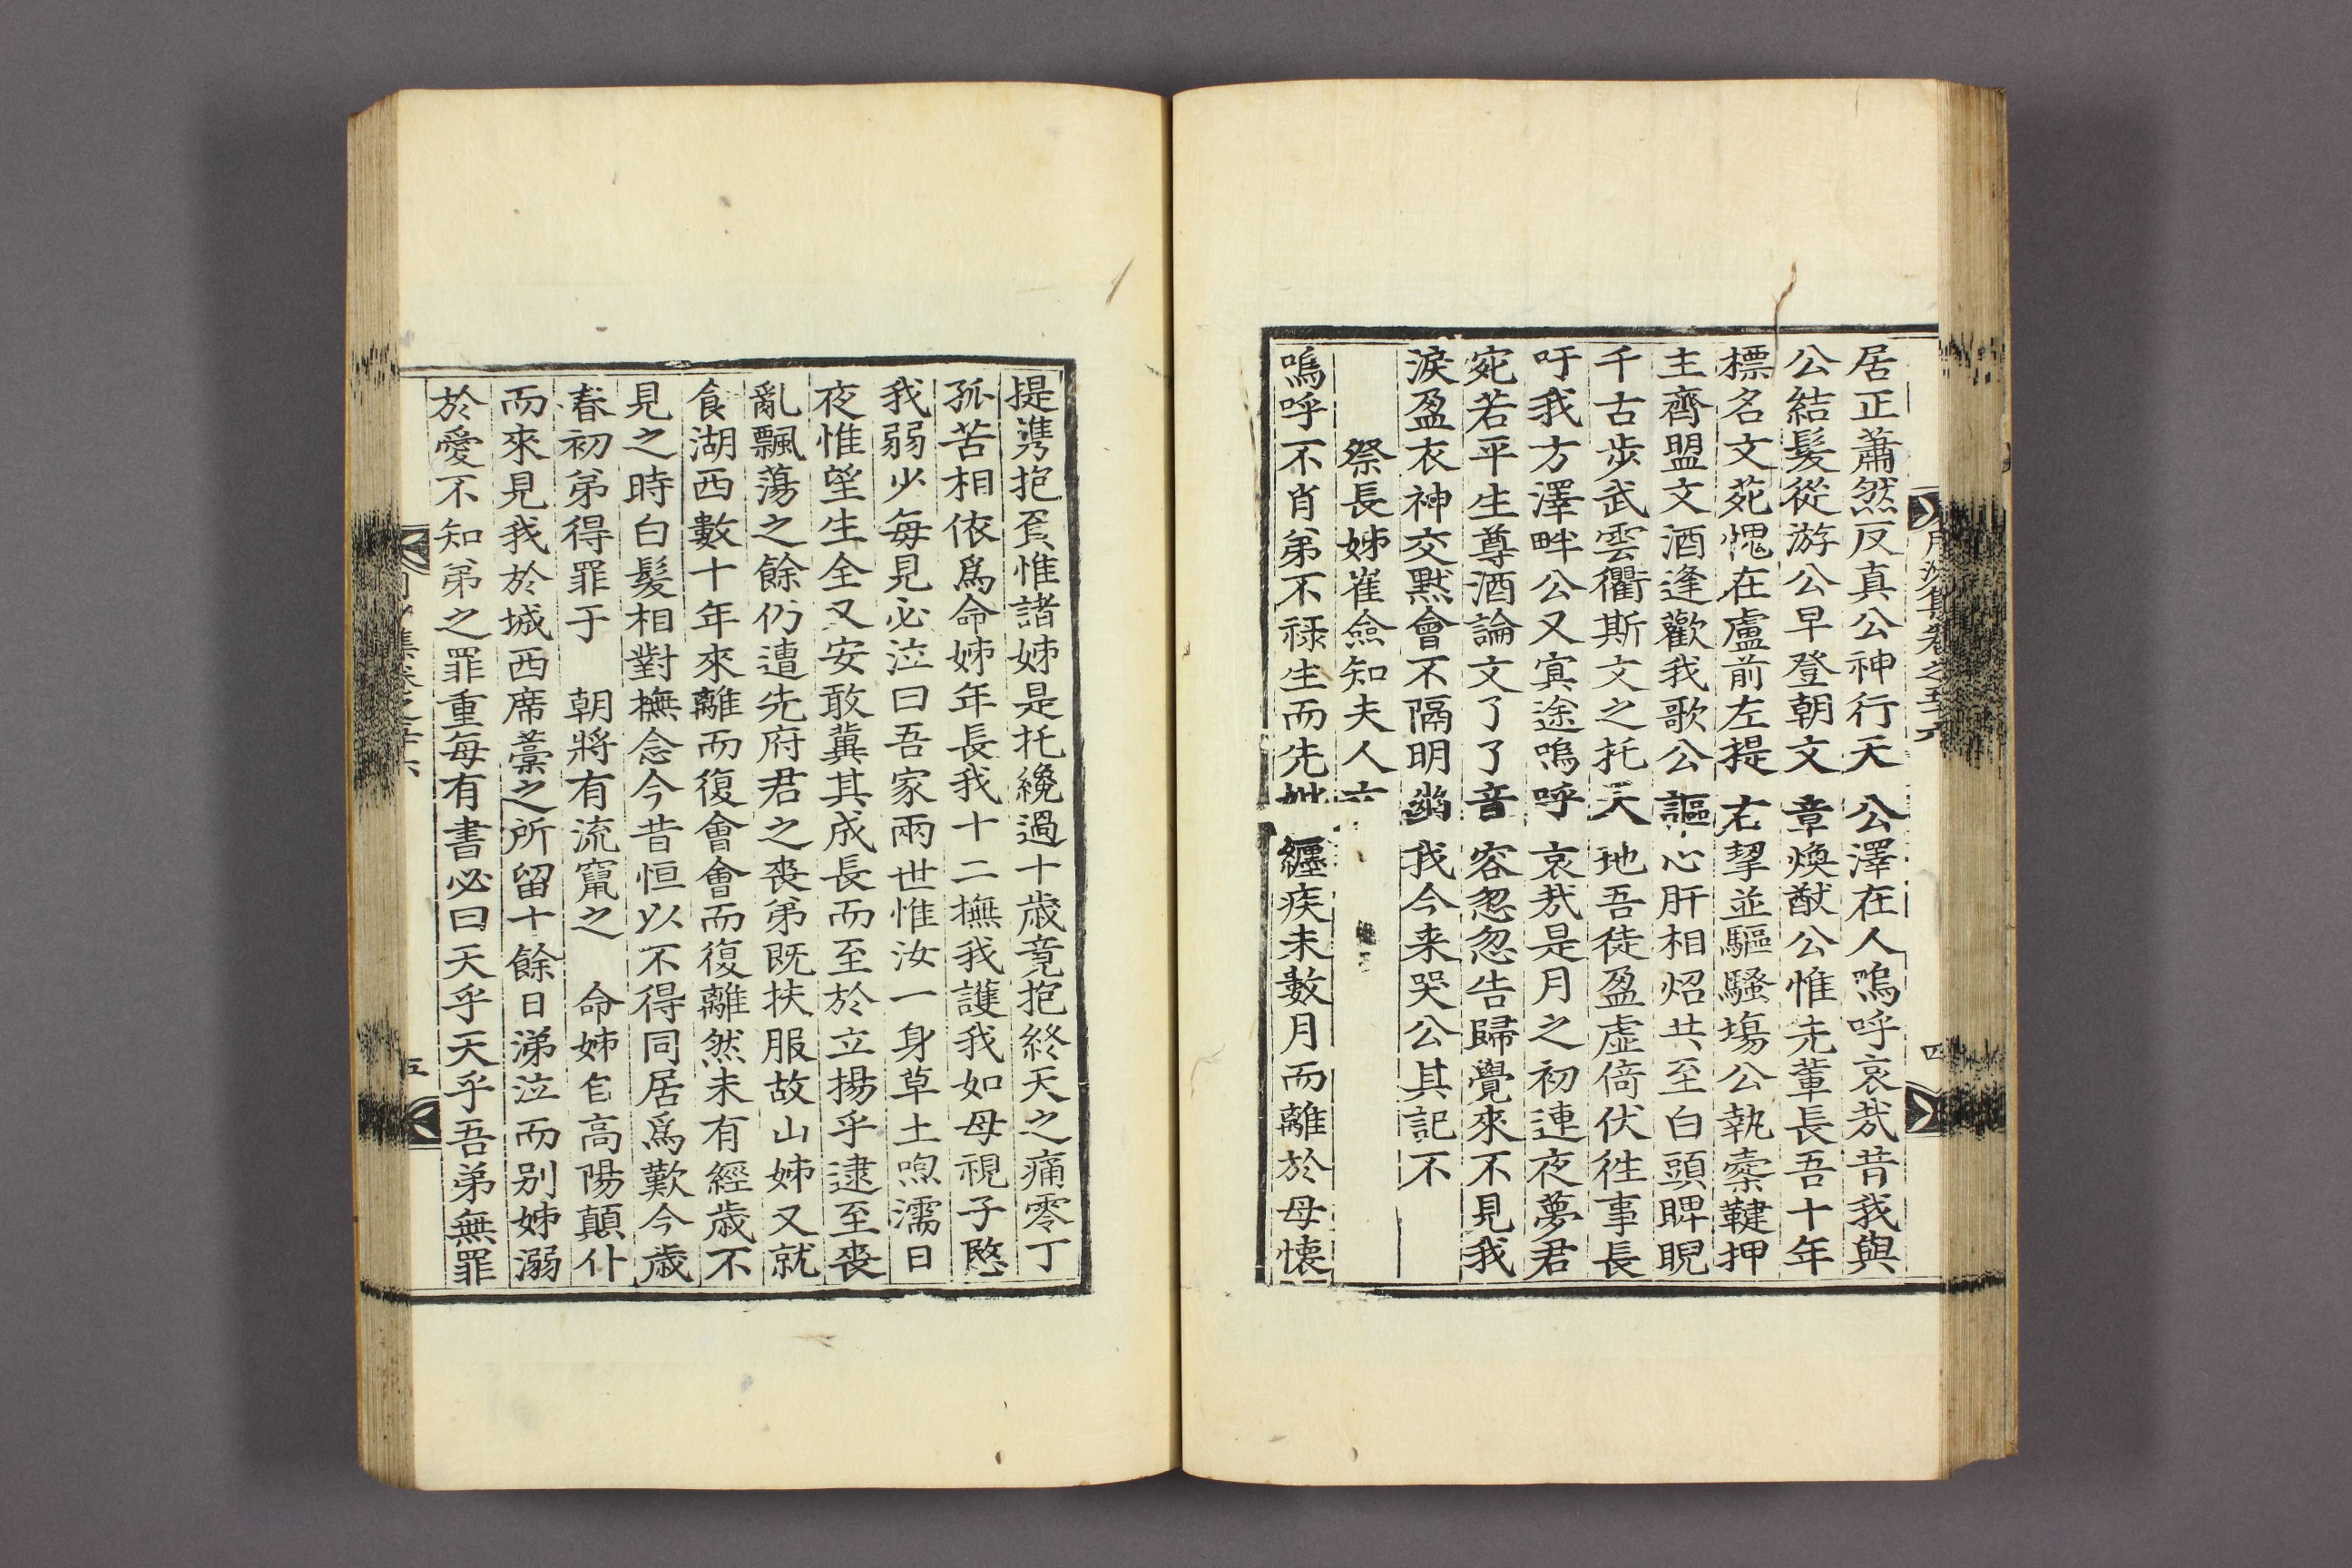 居正蕭然反真公神行天公澤在人嗚呼哀哉昔我與
公結髮從游公早登朝文章煥猷公惟先輩長吾十年
標名文苑愧在盧前左提右挈並驅騷塲公執櫜鞬押
主齊盟文酒逢歡我歌公謳心肝相炤共至白頭睥睨
千古步武雲衢斯文之托天地吾徒盈虛倚伏徃事長
吁我方澤畔公又㝠途嗚呼哀哉是月之初連夜夢君
宛若平生尊酒論文了了音容忽忽告歸覺來不見我
淚盈衣神交黙會不隔明幽我今来哭公其記不
祭長姊崔僉知夫人文
嗚呼不肖弟不祿生而先妣纒疾未數月而離於母懐
提携抱負惟諸姊是托纔過十歲竟抱終天之痛零丁
孤苦相依爲命姊年長我十二撫我護我如母視子愍
我弱少每見必泣曰吾家兩世惟汝一身草土喣濡日
夜惟望生全又安敢冀其成長而至於立揚乎逮至喪
亂飄蕩之餘仍遭先府君之喪弟既扶服故山姊又就
食湖西數十年來離而復會會而復離然未有經歲不
見之時白髮相對撫念今昔恒以不得同居爲歎今歲
春初弟得罪于 朝將有流竄之 命姊自高陽顛仆
而來見我於城西席藁之所留十餘日涕泣而别姊溺
於愛不知弟之罪重每有書必曰天乎天乎吾弟無罪